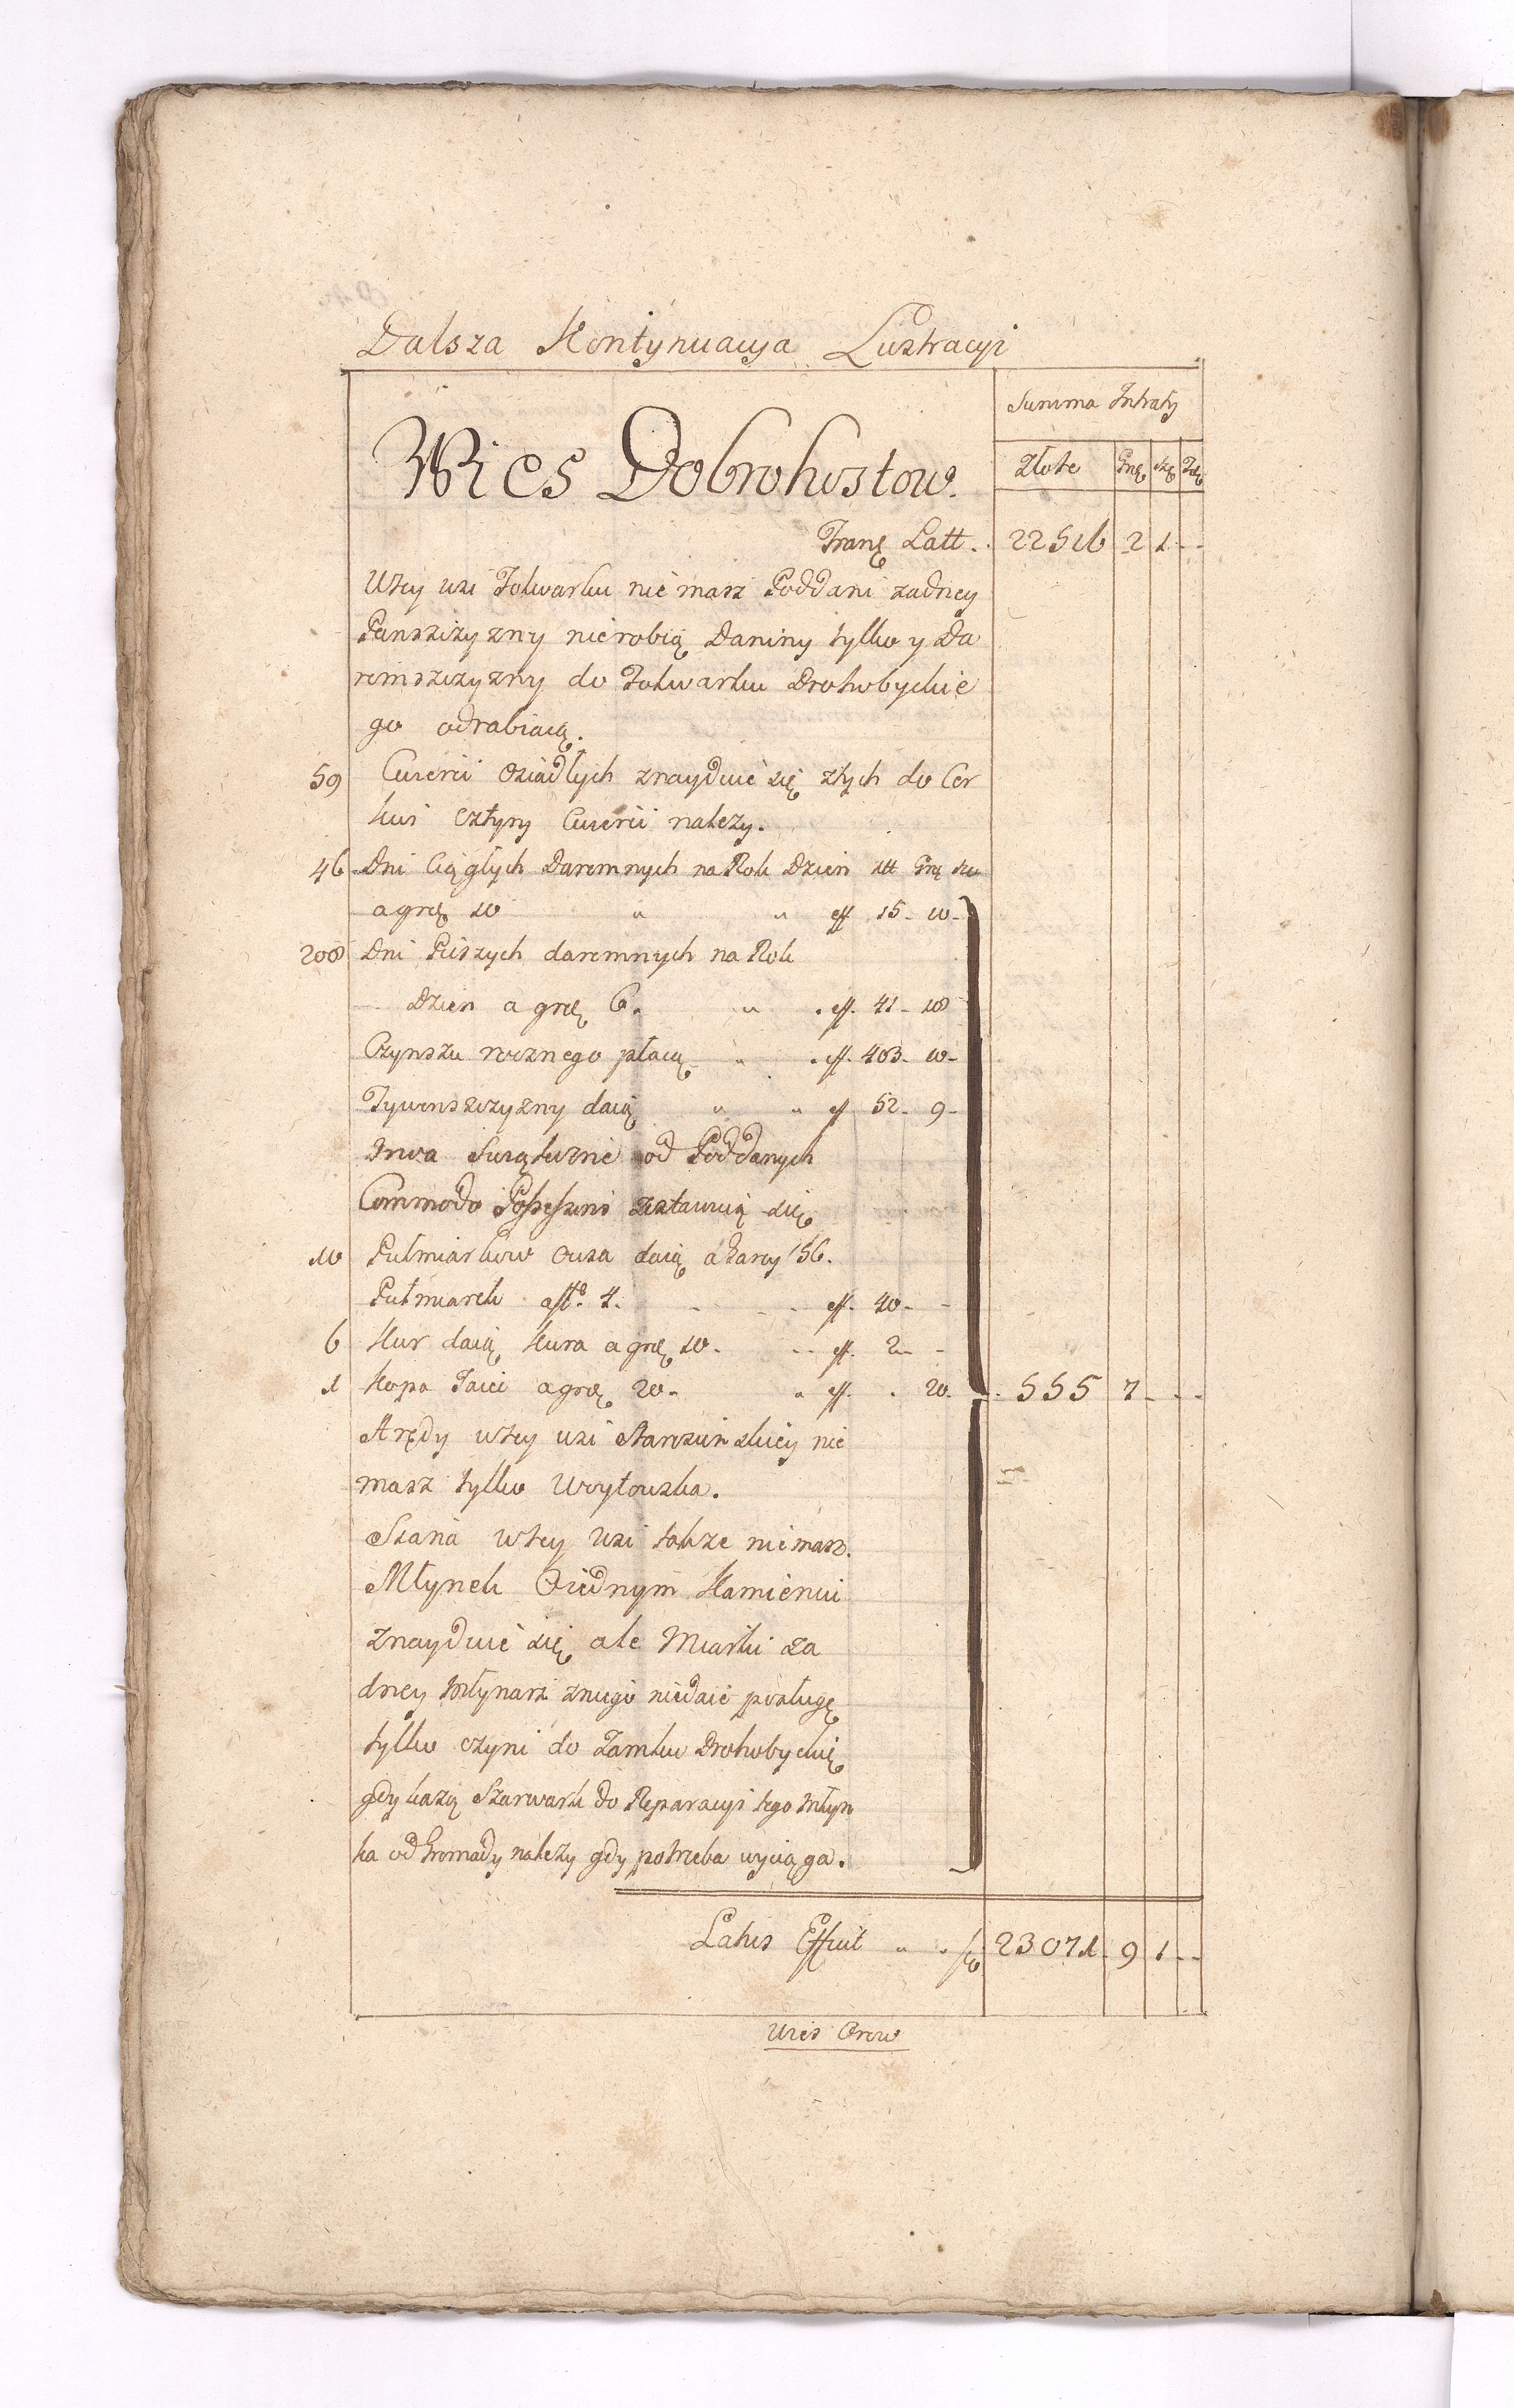 Dalsza Kontynuacya Lustracyi
Summa Intraty
Wies Dobrohostow.
Złote Grę Szę
Tranę Latt. 22516 2 1
Wtey wsi Folwarku nie masz Poddani zadney
Panszczyzny nie robią Daniny tylko y Da
remszczyzny do Folwarku Drohobyckie
go odrabiaią.
59 Cwierci osiadłych znayduie się ztych do Cer
kwi cztyry Cwierci należy.
46 Dni Ciągłych Daremnych na Rok Dzień
a grę 10 eff 15 - 10 -
208 Dni Pieszych daremnych na Rok
Dzien a grę 6. eff. 41 - 18
Czynszu rocznego płacą eff. 403 - 10 -
Tywonszczyzny daią eff 52 - 9 -
od Poddanych
Commodo Possessoris zostawuią się
10 Pułmiarkow Owsa daią a Garcy 56.
Pułmiarek a ft. 4. eff. 40 - -
6 Kur daią Kura a grę 10. eff. 2 - -
1 Kopa Jaiec a grę 20. eff. . 20. 555 7
Arędy wtey wsi Starościnskiey nie
masz tylko Woytowska.
Siana wtey wsi takze nie masz.
Młynek O iednym Kamieniu
znayduie się ale Miarki za
dney Młynarz zniego niedaie posługę
tylko czyni do Zamku Drohobyckię
gdy kazą Szarwark do Reparacyi tego Młyn
ka od Gromady należy gdy potrzeba wyciąga.
Latus Efficit 23071 9 1
Wies Orow